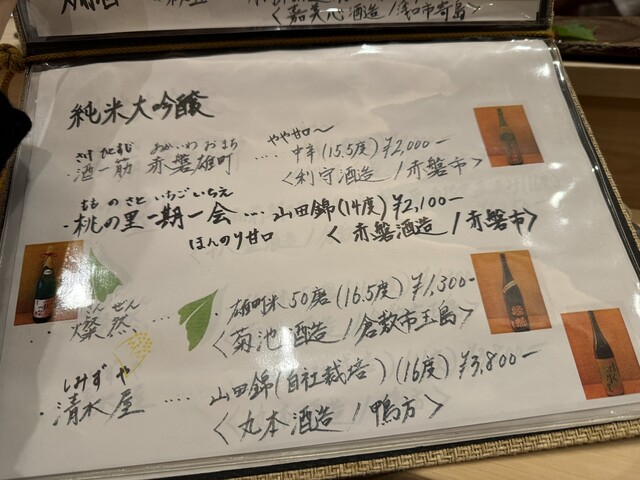 〈嘉美心酒造/浅口市寄島〉
純米大吟醸
やや甘口〜
さけ ひとすじ あかいわ おまち
・酒一筋 赤磐雄町 .... 中辛(15.5度)¥2,000−
〈利守酒造/赤磐市〉
もも の さと いちご いちえ
・桃の里 一期一会 ... 山田錦(14度)¥2,100−
ほんのり甘口 〈赤磐酒造/赤磐市〉
さん ぜん
・燦然 .... 雄町米50磨(16.5度)¥1,300−
〈菊池酒造/倉敷市玉島〉
しみず や
・清水屋 .... 山田錦(自社栽培)(16度)¥3,800−
〈丸本酒造/鴨方〉